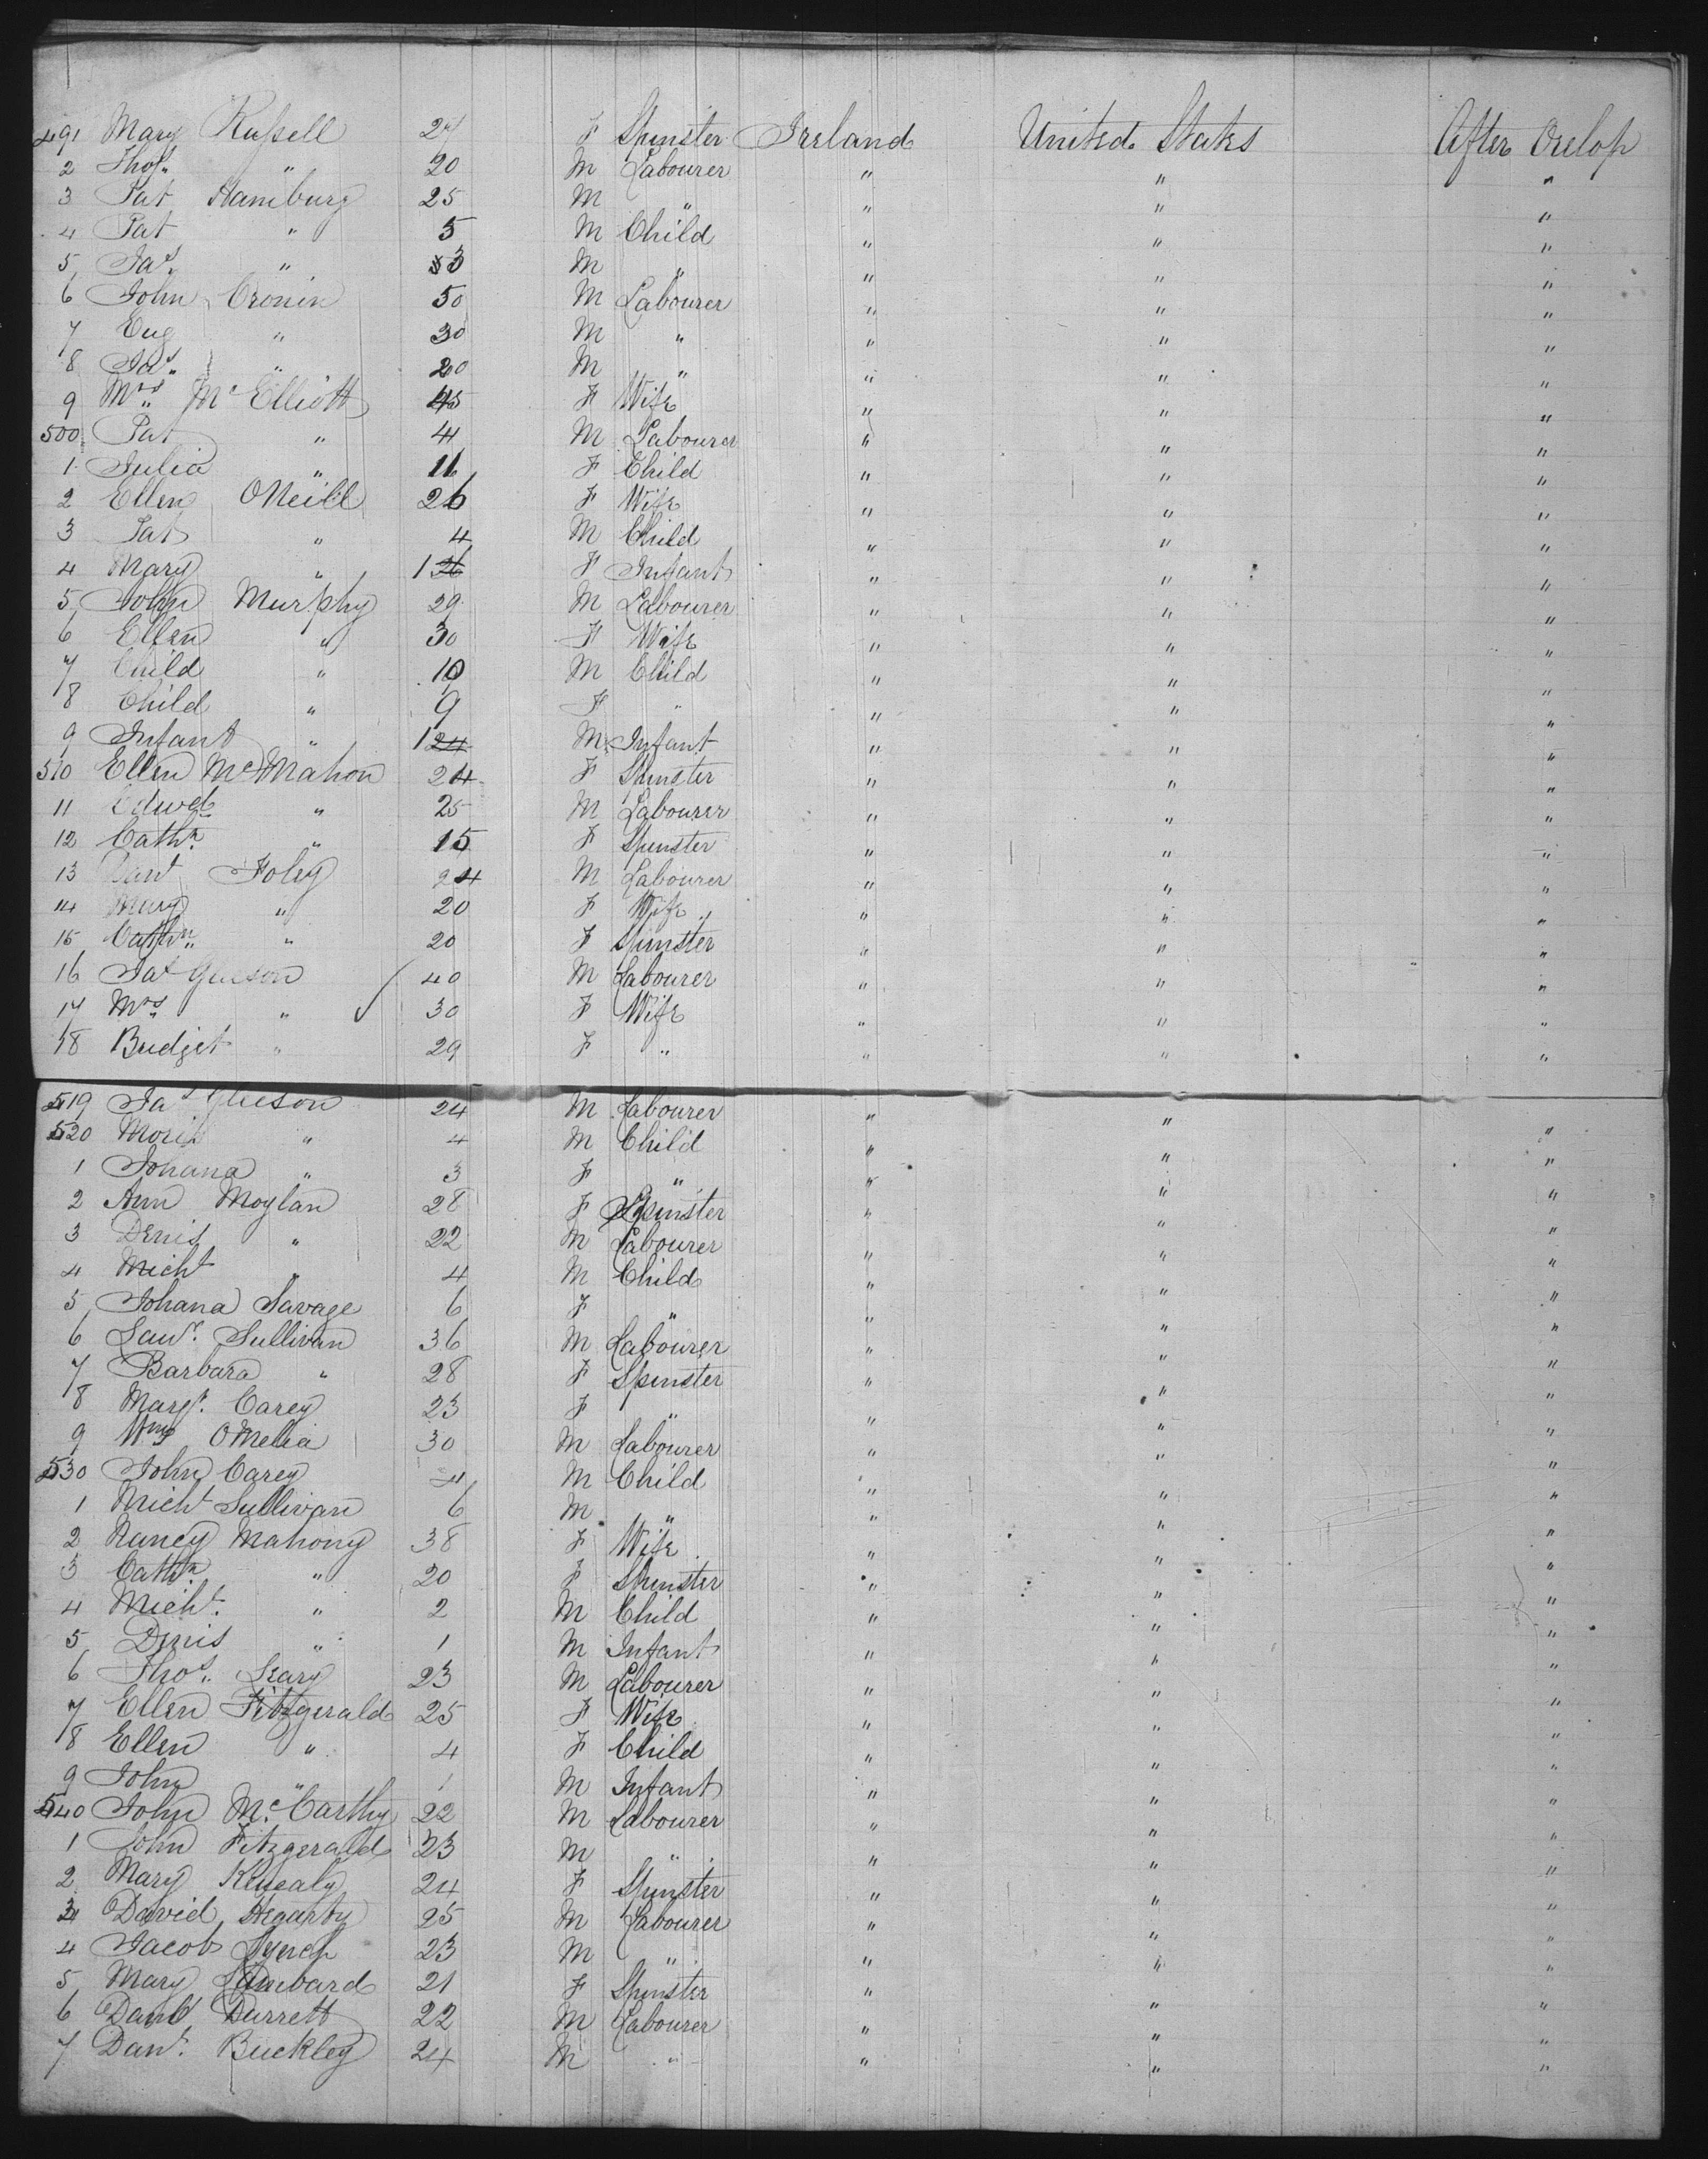 491 Mary Russell 27 F Spinster Ireland United States After Orelop
2 Thos. " 20 M Labourer " " "
3 Pat Hamburg 25 M " " " "
4 Pat " 5 M Child " " "
5 Jas. " 3 M " " " "
6 John Cronin 50 M Labourer " " "
7 Eug " 30 M " " " "
8 Jas. " 20 M " " " "
9 Mrs. McElliott 45 F Wife " " "
500 Pat " M Labourer " " "
1 Julia " 11 F Child " " "
2 Ellen ONeill 26 F Wife " " "
3 Pat " 4 M Child " " "
4 Mary " 1 F Infant " " "
5 John Murphy 29 M Labourer " " "
6 Ellen " 30 F Wife " " "
7 Child " 10 M Child " " "
8 Child " 9 F " " " "
9 Infant " 1 24 M Infant " " "
510 Ellen McMahon 24 F Spinster " " "
11 Edwd " 25 M Labourer " " "
12 Cathn " 15 F Spinster " " "
13 Foley 24 M Labourer " " "
14 Mary " 20 F Wife " " "
15 Cathn " 20 F Spinster " " "
16 Jas Gleeson 40 M Labourer " " "
17 Mrs " 30 F Wife " " "
18 Bridget " 29 F " " " "
519 Jas Gleeson 24 M Labourer " " "
520 Moris " 4 M Child " " "
1 Johana " 3 F " " " "
2 Ann Moylan 28 F Spinster " " "
3 Denis " 22 M Labourer " " "
4 Michl " 4 M Child " " "
5 Johana Savage 6 F " " " "
6 Lawr. Sullivan 36 M Labourer " " "
7 Barbara " 28 F Spinster " " "
8 Margt. Carey 23 F " " " "
9 Wm OMelia 30 M Labourer " " "
530 John Carey 4 M Child " " "
1 Michl Sullivan 6 M " " " "
2 Nancy Mahony 38 F Wife " " "
3 Cathn " 20 F Spinster " " "
4 Michl. " 2 M Child " " "
5 Denis " 1 M Infant " " "
6 Thos. Leary 23 M Labourer " " "
7 Ellen Fitzgerald 25 F Wife " " "
8 Ellen " 4 F Child " " "
9 John " 1 M Infant " " "
540 John McCarthy 22 M Labourer " " "
1 John Fitzgerald 23 M " " " "
2 Mary Kinealy 24 F Spinster " " "
3 David Hegarty 25 M Labourer " " "
4 Jacob Lynch 23 M " " " "
5 Mary 21 F Spinster " " "
6 Danl Durrett 22 M Labourer " " "
7 Danl. Buckley 24 M " " " "